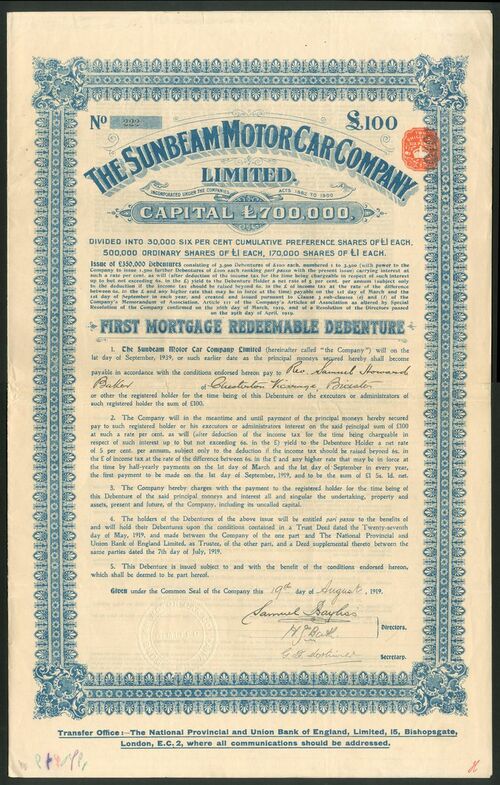 No 222 £100
THE SUNBEAM MOTOR CAR COMPANY
LIMITED.
INCORPORATED UNDER THE COMPANIES ACTS 1862 TO 1900
CAPITAL £700,000,
DIVIDED INTO 30,000 SIX PER CENT CUMULATIVE PREFERENCE SHARES OF £1 EACH,
500,000 ORDINARY SHARES OF £1 EACH, 170,000 SHARES OF £1 EACH.
Issue of £350,000 Debentures consisting of 3,500 Debentures of £100 each, numbered 1 to 3,500 (with power to the
Company to issue 1,500 further Debentures of £100 each ranking pari passu with the present issue) carrying interest at
such a rate per cent. as will (after deduction of the income tax for the time being chargeable in respect of such interest
up to but not exceeding 6s. in the £) yield to the Debenture Holder a net rate of 5 per cent. per annum (subject only
to the deduction if the income tax should be raised beyond 6s. in the £ of income tax at the rate of the difference
between 6s. in the £ and any higher rate that may be in force at the time) payable on the 1st day of March and the
1st day of September in each year, and created and issued pursuant to Clause 3 sub-clauses (e) and (f) of the
Company's Memorandum of Association, Article 111 of the Company's Articles of Association as altered by Special
Resolution of the Company confirmed on the 16th day of March, 1919, and of a Resolution of the Directors passed
on the 29th day of April, 1919.
FIRST MORTGAGE REDEEMABLE DEBENTURE
1. The Sunbeam Motor Car Company Limited (hereinafter called "the Company") will on the
1st day of September, 1939, or such earlier date as the principal moneys secured hereby shall become
payable in accordance with the conditions endorsed hereon pay to Rev. Samuel Howard
Baker of Chesterton Vicarage, Bicester
or other the registered holder for the time being of this Debenture or the executors or administrators of
such registered holder the sum of £100.
2. The Company will in the meantime and until payment of the principal money hereby secured
pay to such registered holder or his executors or administrators interest on the said principal sum of £100
at such a rate per cent. as will (after deduction of the income tax for the time being chargeable in
respect of such interest up to but not exceeding 6s. in the £) yield to the Debenture Holder a net rate
of 5 per cent. per annum, subject only to the deduction if the income tax should be raised beyond 6s. in
the £ of income tax at the rate of the difference between 6s. in the £ and any higher rate that may be in force at the
time by half-yearly payments on the 1st day of March and the 1st day of September in every year,
the first payment to be made on the 1st day of September, 1919, and to be the sum of £1 5s. 1d. net.
3. The Company hereby charges with the payment to the registered holder for the time being of
this Debenture of the said principal moneys and interest all and singular the undertaking, property and
assets, present and future, of the Company, including its uncalled capital.
4. The holders of the Debentures of the above issue will be entitled pari passu to the benefits of
and will hold their Debentures upon the conditions contained in a Trust Deed dated the Twenty-seventh
day of May, 1919, and made between the Company of the one part and The National Provincial and
Union Bank of England Limited, as Trustee, of the other part, and a Deed supplemental thereto between the
same parties dated the 7th day of July, 1919.
5. This Debenture is issued subject to and with the benefit of the conditions endorsed hereon,
which shall be deemed to be part hereof.
Given under the Common Seal of the Company this 19th day of August, 1919.
Samuel Bayliss
Directors.
Secretary.
Transfer Office:—The National Provincial and Union Bank of England, Limited, 15, Bishopsgate,
London, E.C.2, where all communications should be addressed.